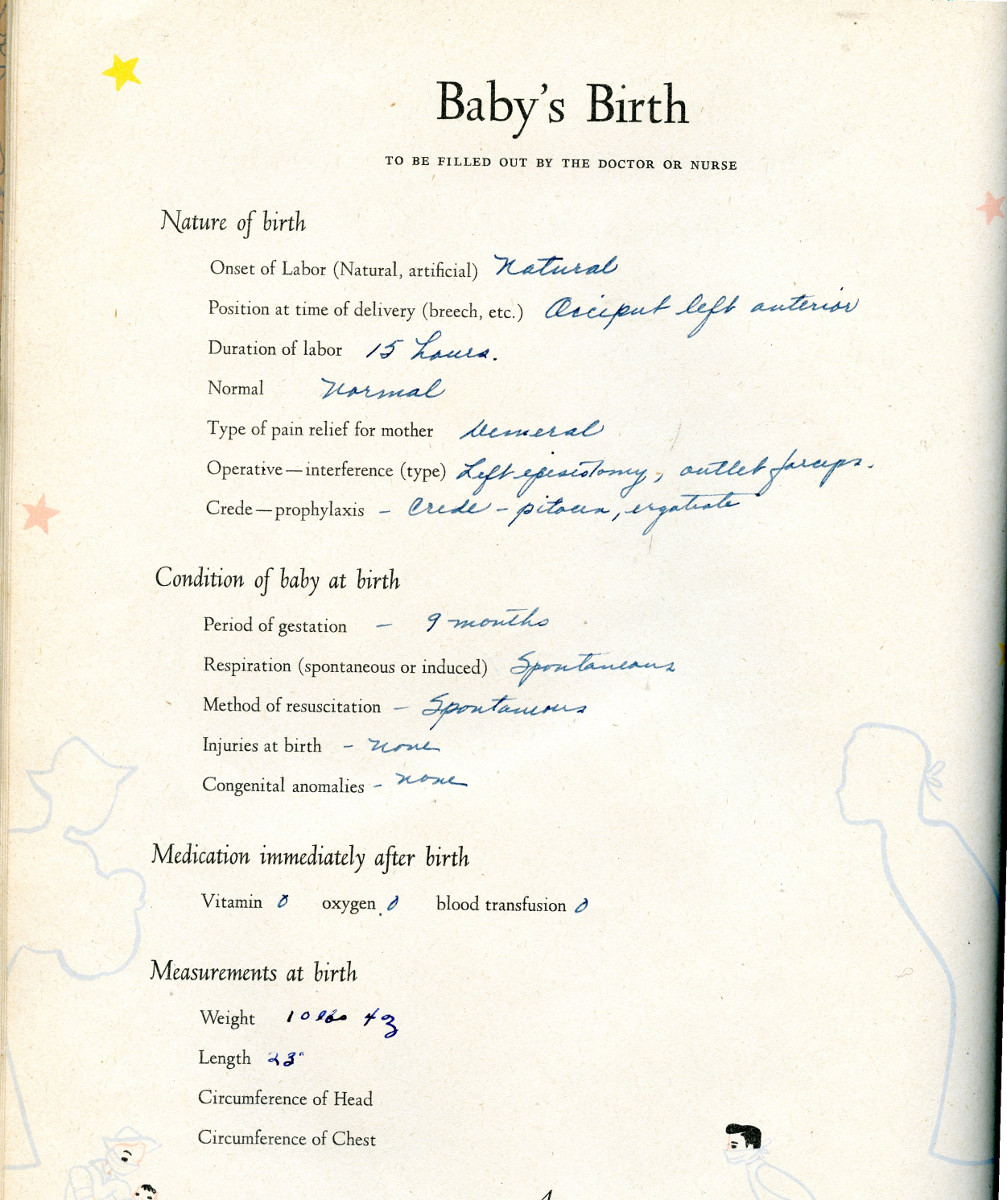 Baby's Birth
TO BE FILLED OUT BY THE DOCTOR OR NURSE
Nature of birth
Onset of Labor (Natural, artificial) Natural
Position at time of delivery (breech, etc.) Occiput left anterior
Duration of labor 15 hours.
Normal Normal
Type of pain relief for mother Demeral
Operative—interference (type) Left episiotomy, outlet forceps.
Crede—prophylaxis - Crede - pitocin, ergotrate
Condition of baby at birth
Period of gestation - 9 months
Respiration (spontaneous or induced) Spontaneous
Method of resuscitation - Spontaneous
Injuries at birth - none
Congenital anomalies - none
Medication immediately after birth
Vitamin 0 oxygen 0 blood transfusion 0
Measurements at birth
Weight 10 lbs 4 
Length 23"
Circumference of Head
Circumference of Chest